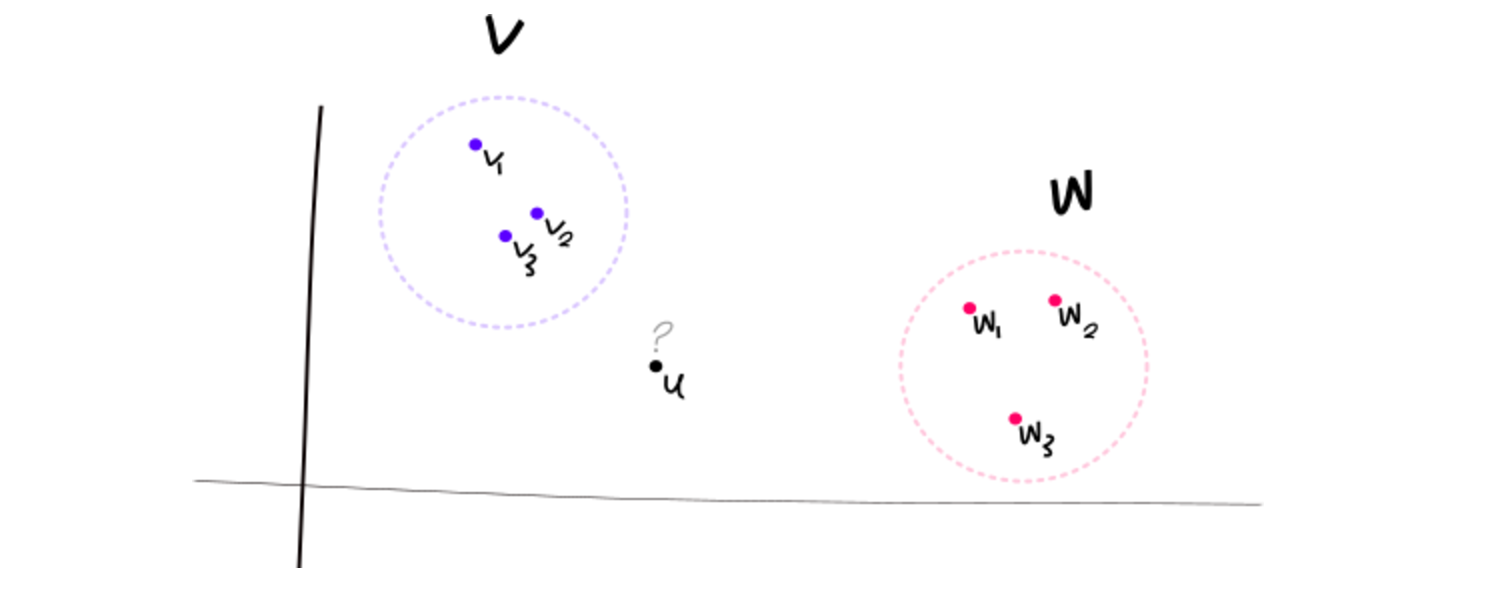 V
v₁
v₂
v₃
W
w₁
w₂
w₃
?
u